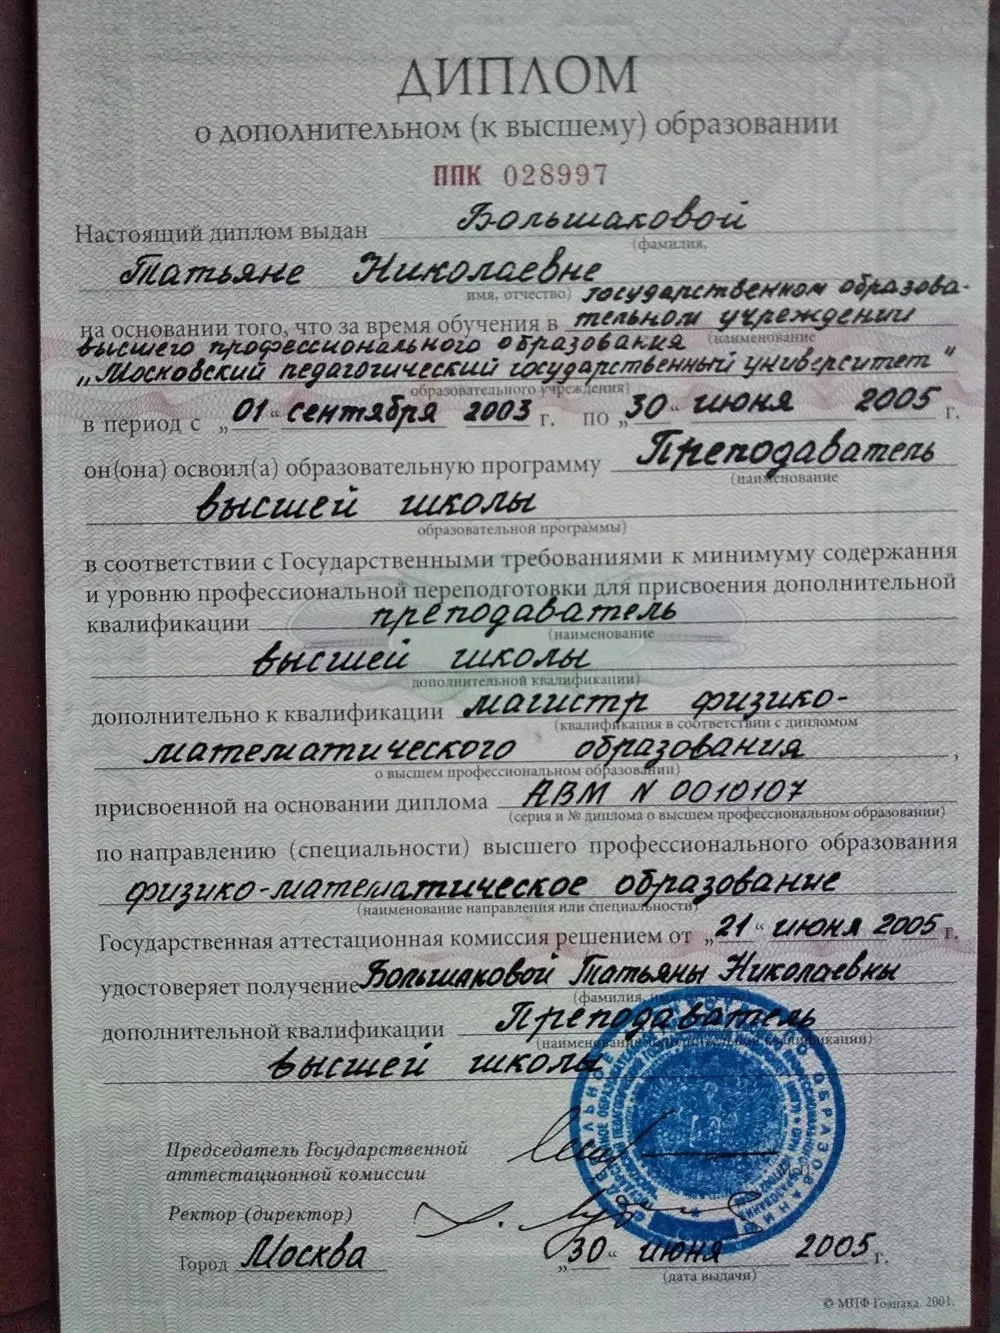 ДИПЛОМ
о дополнительном (к высшему) образовании
ППК 028997
Настоящий диплом выдан Большаковой
(фамилия,
Татьяне Николаевне
имя, отчество) государственном образова-
на основании того, что за время обучения в тельном учреждении
(наименование
высшего профессионального образования
„Московский педагогический государственный университет"
образовательного учреждения)
в период с „01" сентября 2003 г. по „30" июня 2005 г.
он(она) освоил(а) образовательную программу Преподаватель
(наименование
высшей школы
образовательной программы)
в соответствии с Государственными требованиями к минимуму содержания
и уровню профессиональной переподготовки для присвоения дополнительной
квалификации преподаватель
(наименование
высшей школы
дополнительной квалификации)
дополнительно к квалификации магистр физико-
(квалификация в соответствии с дипломом
математического образования,
о высшем профессиональном образовании)
присвоенной на основании диплома АВМ N 0010107
(серия и № диплома о высшем профессиональном образовании)
по направлению (специальности) высшего профессионального образования
физико-математическое образование
(наименование направления или специальности)
Государственная аттестационная комиссия решением от „21" июня 2005 г.
удостоверяет получение Большаковой Татьяны Николаевны
(фамилия,
дополнительной квалификации Преподаватель
(наименование квалификации)
высшей школы
Председатель Государственной
аттестационной комиссии
М.П.
Ректор (директор)
Город Москва „30" июня 2005 г.
(дата выдачи)
© МПФ Гознака. 2001.